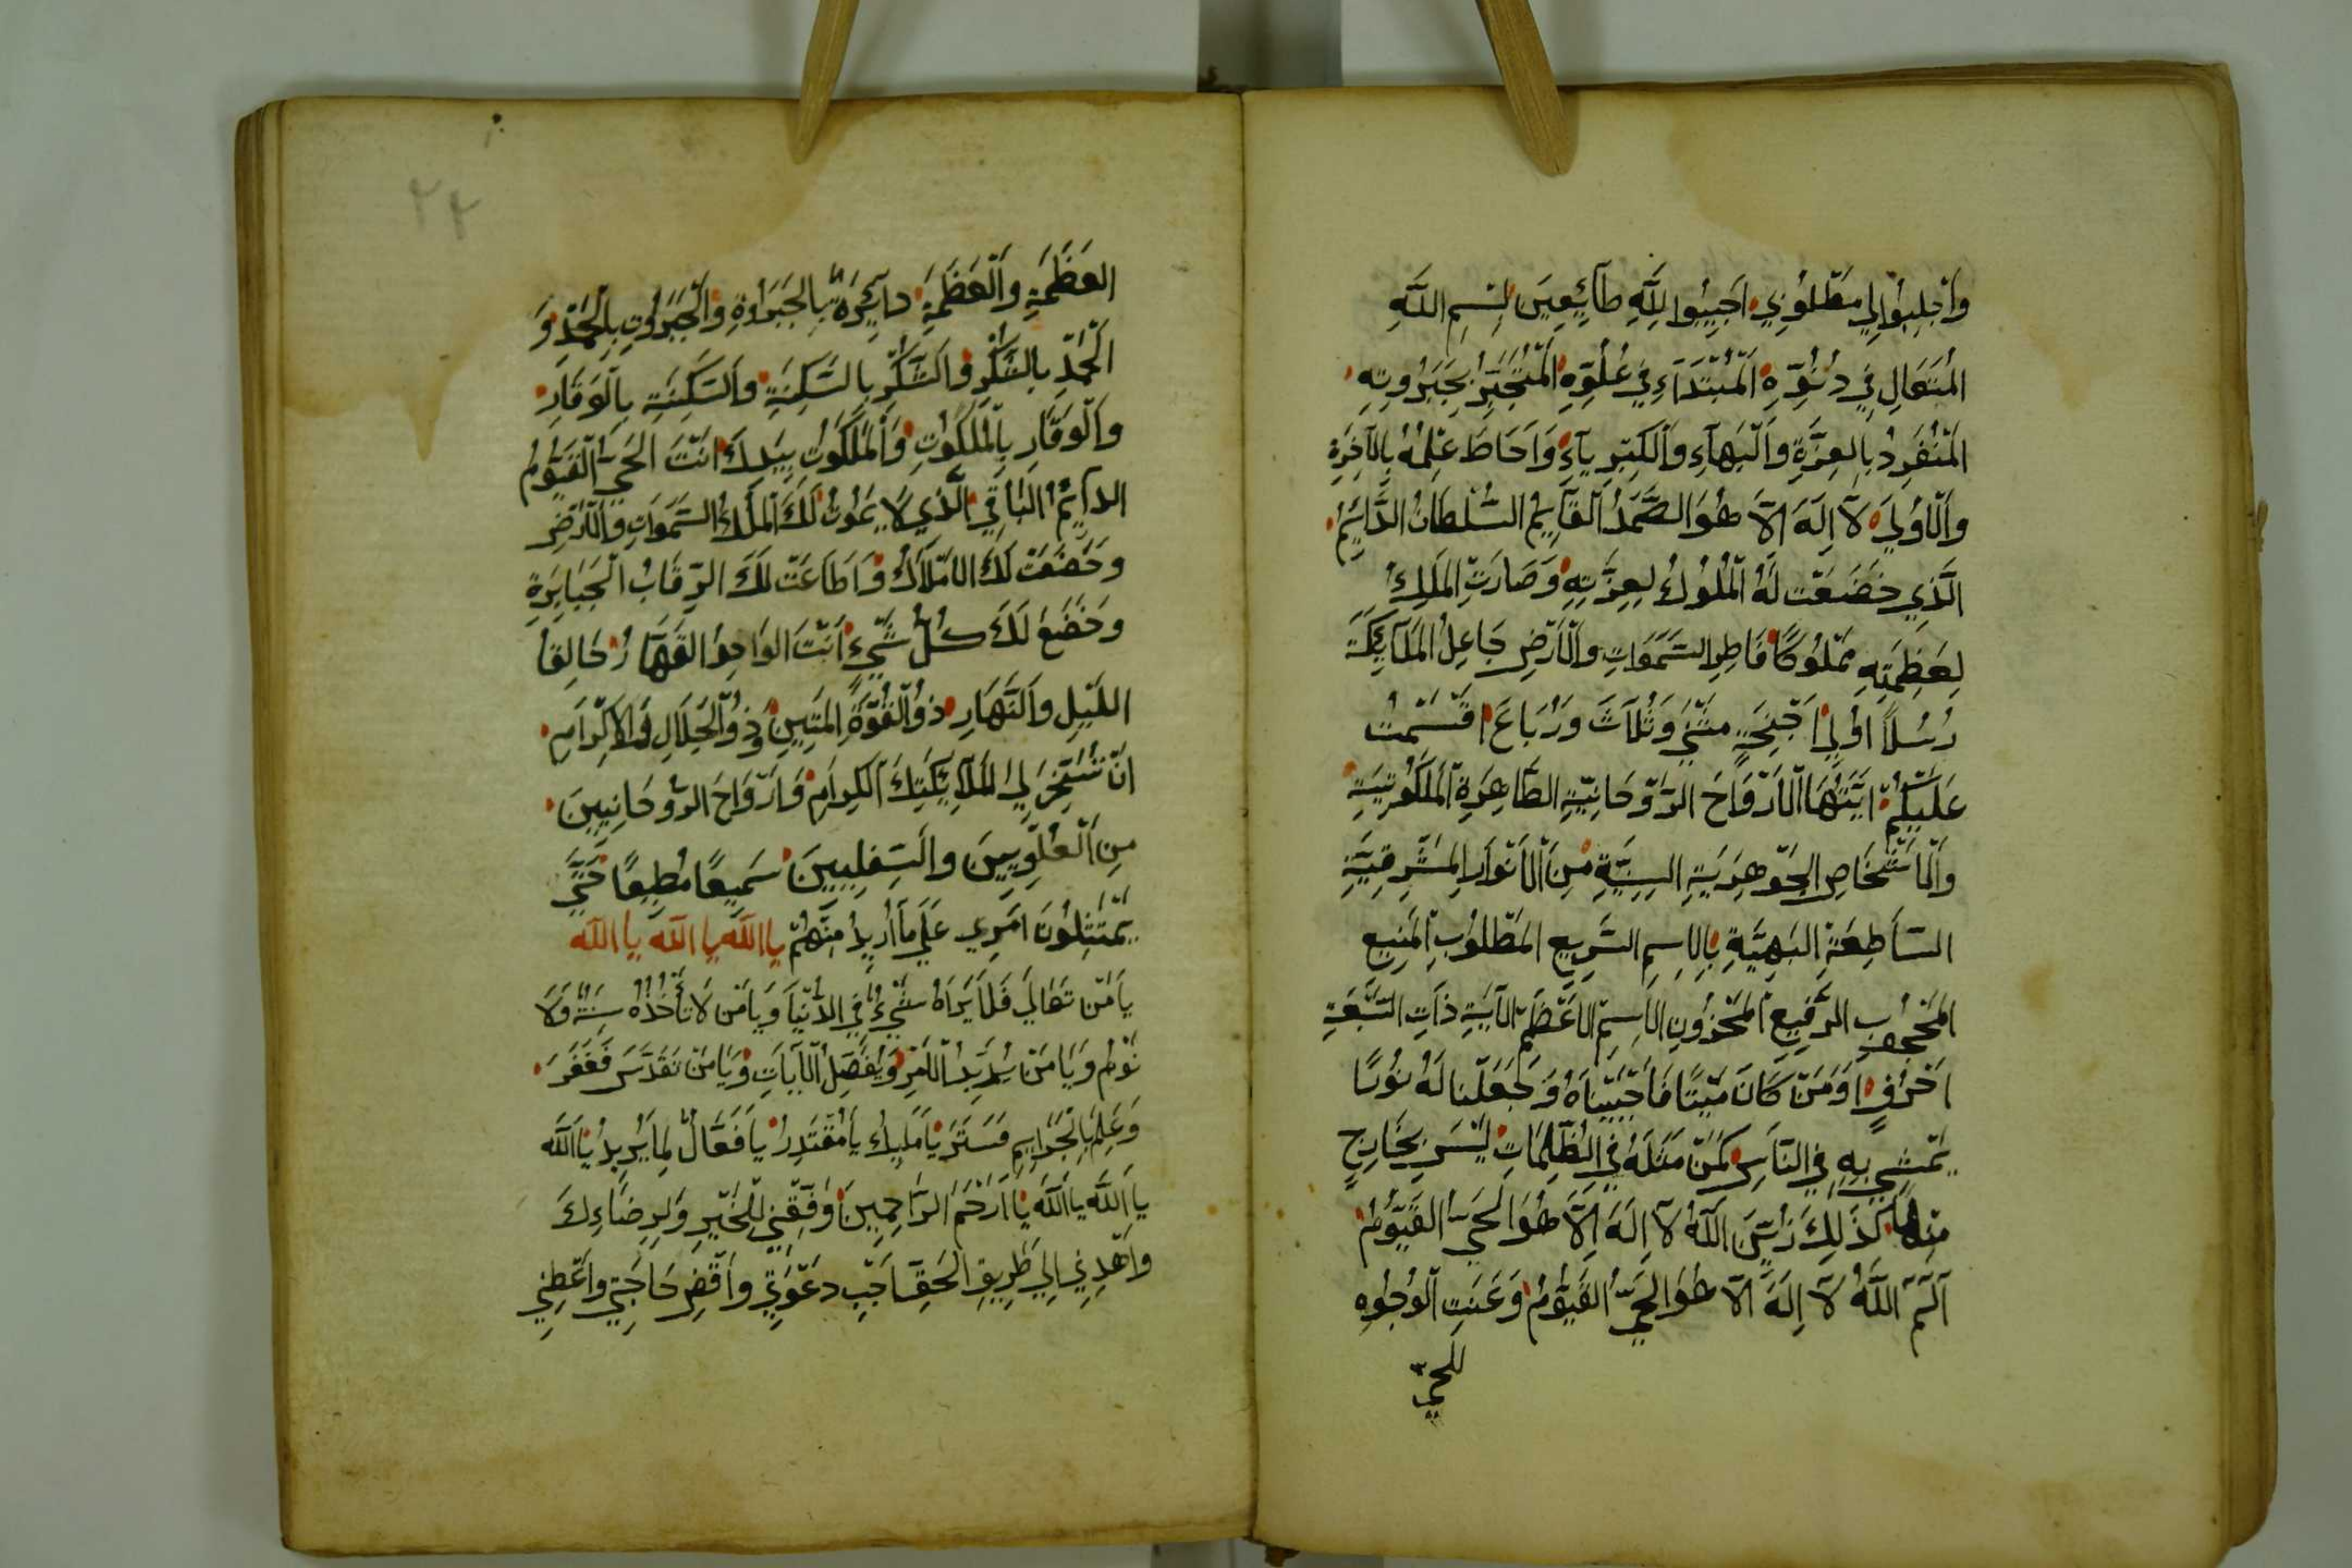 وَاَجْلِبُوْا اِلِي مَطْلُوْبِي اَجِيْبُوا لِلّٰهِ طَآئِعِينَ لِسْمِ اللّٰهِ
المُتَعَالِ فِي دُنُوِّهِ اَلْمُبْتَدَآءِ فِي عُلُوِّهِ الْمُتَجَبِّرُ بِجَبَرُوتِهِ
المُنْفَرِدُ بِالعِزَّةِ وَالْبَهَآءِ وَالْكِبْرِيَآءِ وَاَحَاطَ عِلْمُهُ بِالآخِرَةِ
وَالْاُوْلَي لَآ اِلَهَ اِلَّا هُوَ الصَّمَدُ القَآيِمُ السُّلْطَانُ الدَّايِمُ
الَّذِي خَضَعَتْ لَهُ الْمُلُوكُ لِعِزَّتِهِ وَصَارَتِ المَلِكُ
لِعَظَمَتِهِ مَمْلُوكًا فَاطِرِ السَّمَوَاتِ وَالْاَرْضِ جَاعِلُ المَلَآيِكَةَ
رُسُلاً اُوْلِي اَجْنِحَةٍ مَثْنَي وَثُلَاثَ وَرُبَاعَ اَقْسَمْتُ
عَلَيْكُمْ اَيَّتُهَا الْاَرْوَاحَ الرَّوْحَانِيَّةِ الطَّاهِرَةِ الْمَلَكُوْتِيَةِ
وَالْاَشْخَاصِ الجَوْهَرِيَةِ السِنِيَّةِ مِنَ الْاَنْوَارِ المَشْرِقِيَّةِ
السَّاطِعَةِ البَهِيَّةِ بِالاِسِمِ السَّرِيعِ المَطْلُوبِ الْمَنِيعِ
المَحْجُوبِ الرَّفِيعِ المَخْزُونِ الاِسِمِ الاَعْظَمِ الآيَةِ ذَاتِ السَّبْعَةِ
اَحْرُفٍ اَوَمَنْ كَانَ مَيْتًا فَاَحْيَيْنَاهُ وَجَعَلْنَا لَهُ نُورًا
يَمْشِي بِهِ فِي النَّاسِ كَمَنْ مَثَلَهُ فِي الظُّلُمَاتِ لَيْسَ بِخَارِجٍ
مِنْهَا كَذَلِكَ زُيِّنَ اَللّٰهُ لَآ اِلَهَ اِلَّا هُوَ الحَيُّ القَيُّوْمُ
آلٓمٓ اَللّٰهُ لَآ اِلَهَ اِلَّا هُوَ الحَيُّ القَيُّوْمُ وَعَنَتِ الْوُجُوْهِ
للحيّ
٢٢
العَظَمَةِ وَالْعَظَمَةِ دآئِرَةٌ بِالجَبَرُوةِ وَالْجَبَرُوْتِ بِالْحَمْدِ وَ
الْحَمْدِ بِالشُّكْرِ وَالشُّكْرِ بِالسَّكِنَةِ وَالسَكِنَةِ بِالوَقَارِ
وَالْوَقَارِ بِالْمَلَكُوْتِ وَالْمَلَكُوْتُ بِيَدِكَ اَنْتَ الحَيُّ الْقَيُّوْمُ
الدآيِمُ البَاقِي الَّذِي لَا يَمُوْتُ لَكَ الْمُلْكُ السَّمَوَاتِ وَالْاَرْضِ
وَخَضَعَتْ لَكَ الاَمْلَاكُ وَاَطَاعَتْ لَكَ الرِّقَابُ الجَبَابِرَةِ
وَخَضَعَ لَكَ كُلُّ شَيْءٍ اَنْتَ الوَاحِدُ القَهَّارُ خَالِقُ
اللَّيْلِ وَالنَّهَارِ ذُو القُوَّةِ المَتِينِ وَذُو الْجَلَالِ وَالاِكْرَامِ
اَنْ تُسَخِّرَ لِي المَلَآئِكَتِكَ اَلكِرَامِ وَاَرْوَاحَ الرُّوحَانِيِينَ
مِنَ الْعُلْوِيِيْنَ وَالسِّفْلِيِينَ سَمِيعًا مُطِيعًا حَتَّي
يَمْتَثِلُونَ اَمْرِي عَلَي مَا اُرِيدُ مِنْهُمْ يا اللّٰه يا اللّٰه يا اللّٰه
يَا مَنْ تَعَالَي فَلَا يَرَاهُ شَيْءٌ فِي الدُّنْيَا وَيَا مَنْ لَا تَأْخُذُهُ سِنَةٌ وَلَا
نَوْمٌ وَيَا مَنْ يُدَبِّرُ الْاَمْرَ وَيُفَصِّلُ الْآيَاتِ وَيَا مَنْ تَقَدَّسَ فَغَفَرَ
وَعَلِمَ بِالجَرَايِمِ فَسَتَرَ يَا مَلِيكُ يَا مُقْتَدِرُ يَا فَعَّالٌ لِمَا يُرِيدُ يَا اَللّٰه
يَا اَللّٰه يَا اَللّٰه يَا اَرْحَمَ الرَّاحِمِينَ وَفِّقْنِي لِلْخَيْرِ وَلِرِضَاءِكَ
وَاهْدِنِي اِلَي طَرِيقِ الحَقِّ اَجِبْ دَعْوَتِي وَاقْضِ حَاجَتِي وَاعْطِنِي